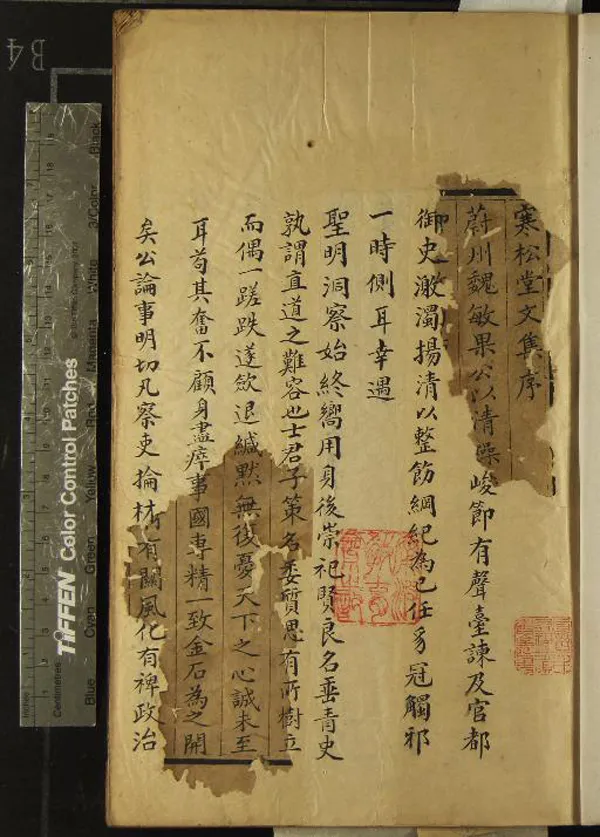 寒松堂文集序
蔚州魏敏果公以清操峻節有聲臺諫及官都
御史激濁揚清以整飭綱紀為己任豸冠觸邪
一時側耳幸遇
聖明洞察始終嚮用身後崇祀賢良名垂青史
孰謂直道之難容也士君子策名委質思有所樹立
而偶一蹉跌遂歛退緘默無復憂天下之心誠未至
耳苟其奮不顧身盡瘁事國專精一致金石為之開
矣公論事明切凡察吏掄材有關風化有裨政治
B4
TIFFEN Color Control Patches
Blue Cyan Green Yellow Red Magenta White 3/Color Black
Inches
Centimetres